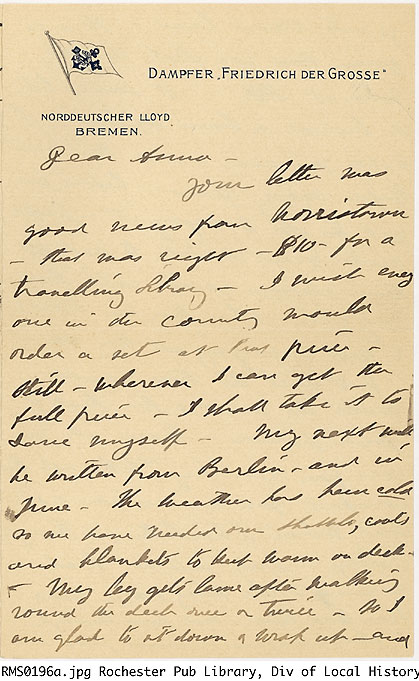 DAMPFER „FRIEDRICH DER GROSSE"
NORDDEUTSCHER LLOYD
BREMEN.
Dear Anna -
Your letter was
good news from Norristown
- that was right - $10 - for a
travelling library - I wish every
one in the country would
order a set at that price -
Still - wherever I can get the
full price - I shall take it to
save myself - My next will
be written from Berlin - and in
June - The weather has been cold
so we have needed our shawls, coats
and blankets to keep warm on deck -
- My leg gets lame after walking
round the deck once or twice - so I
am glad to sit down & wrap up - and
RMS0196a.jpg Rochester Pub Library, Div of Local History